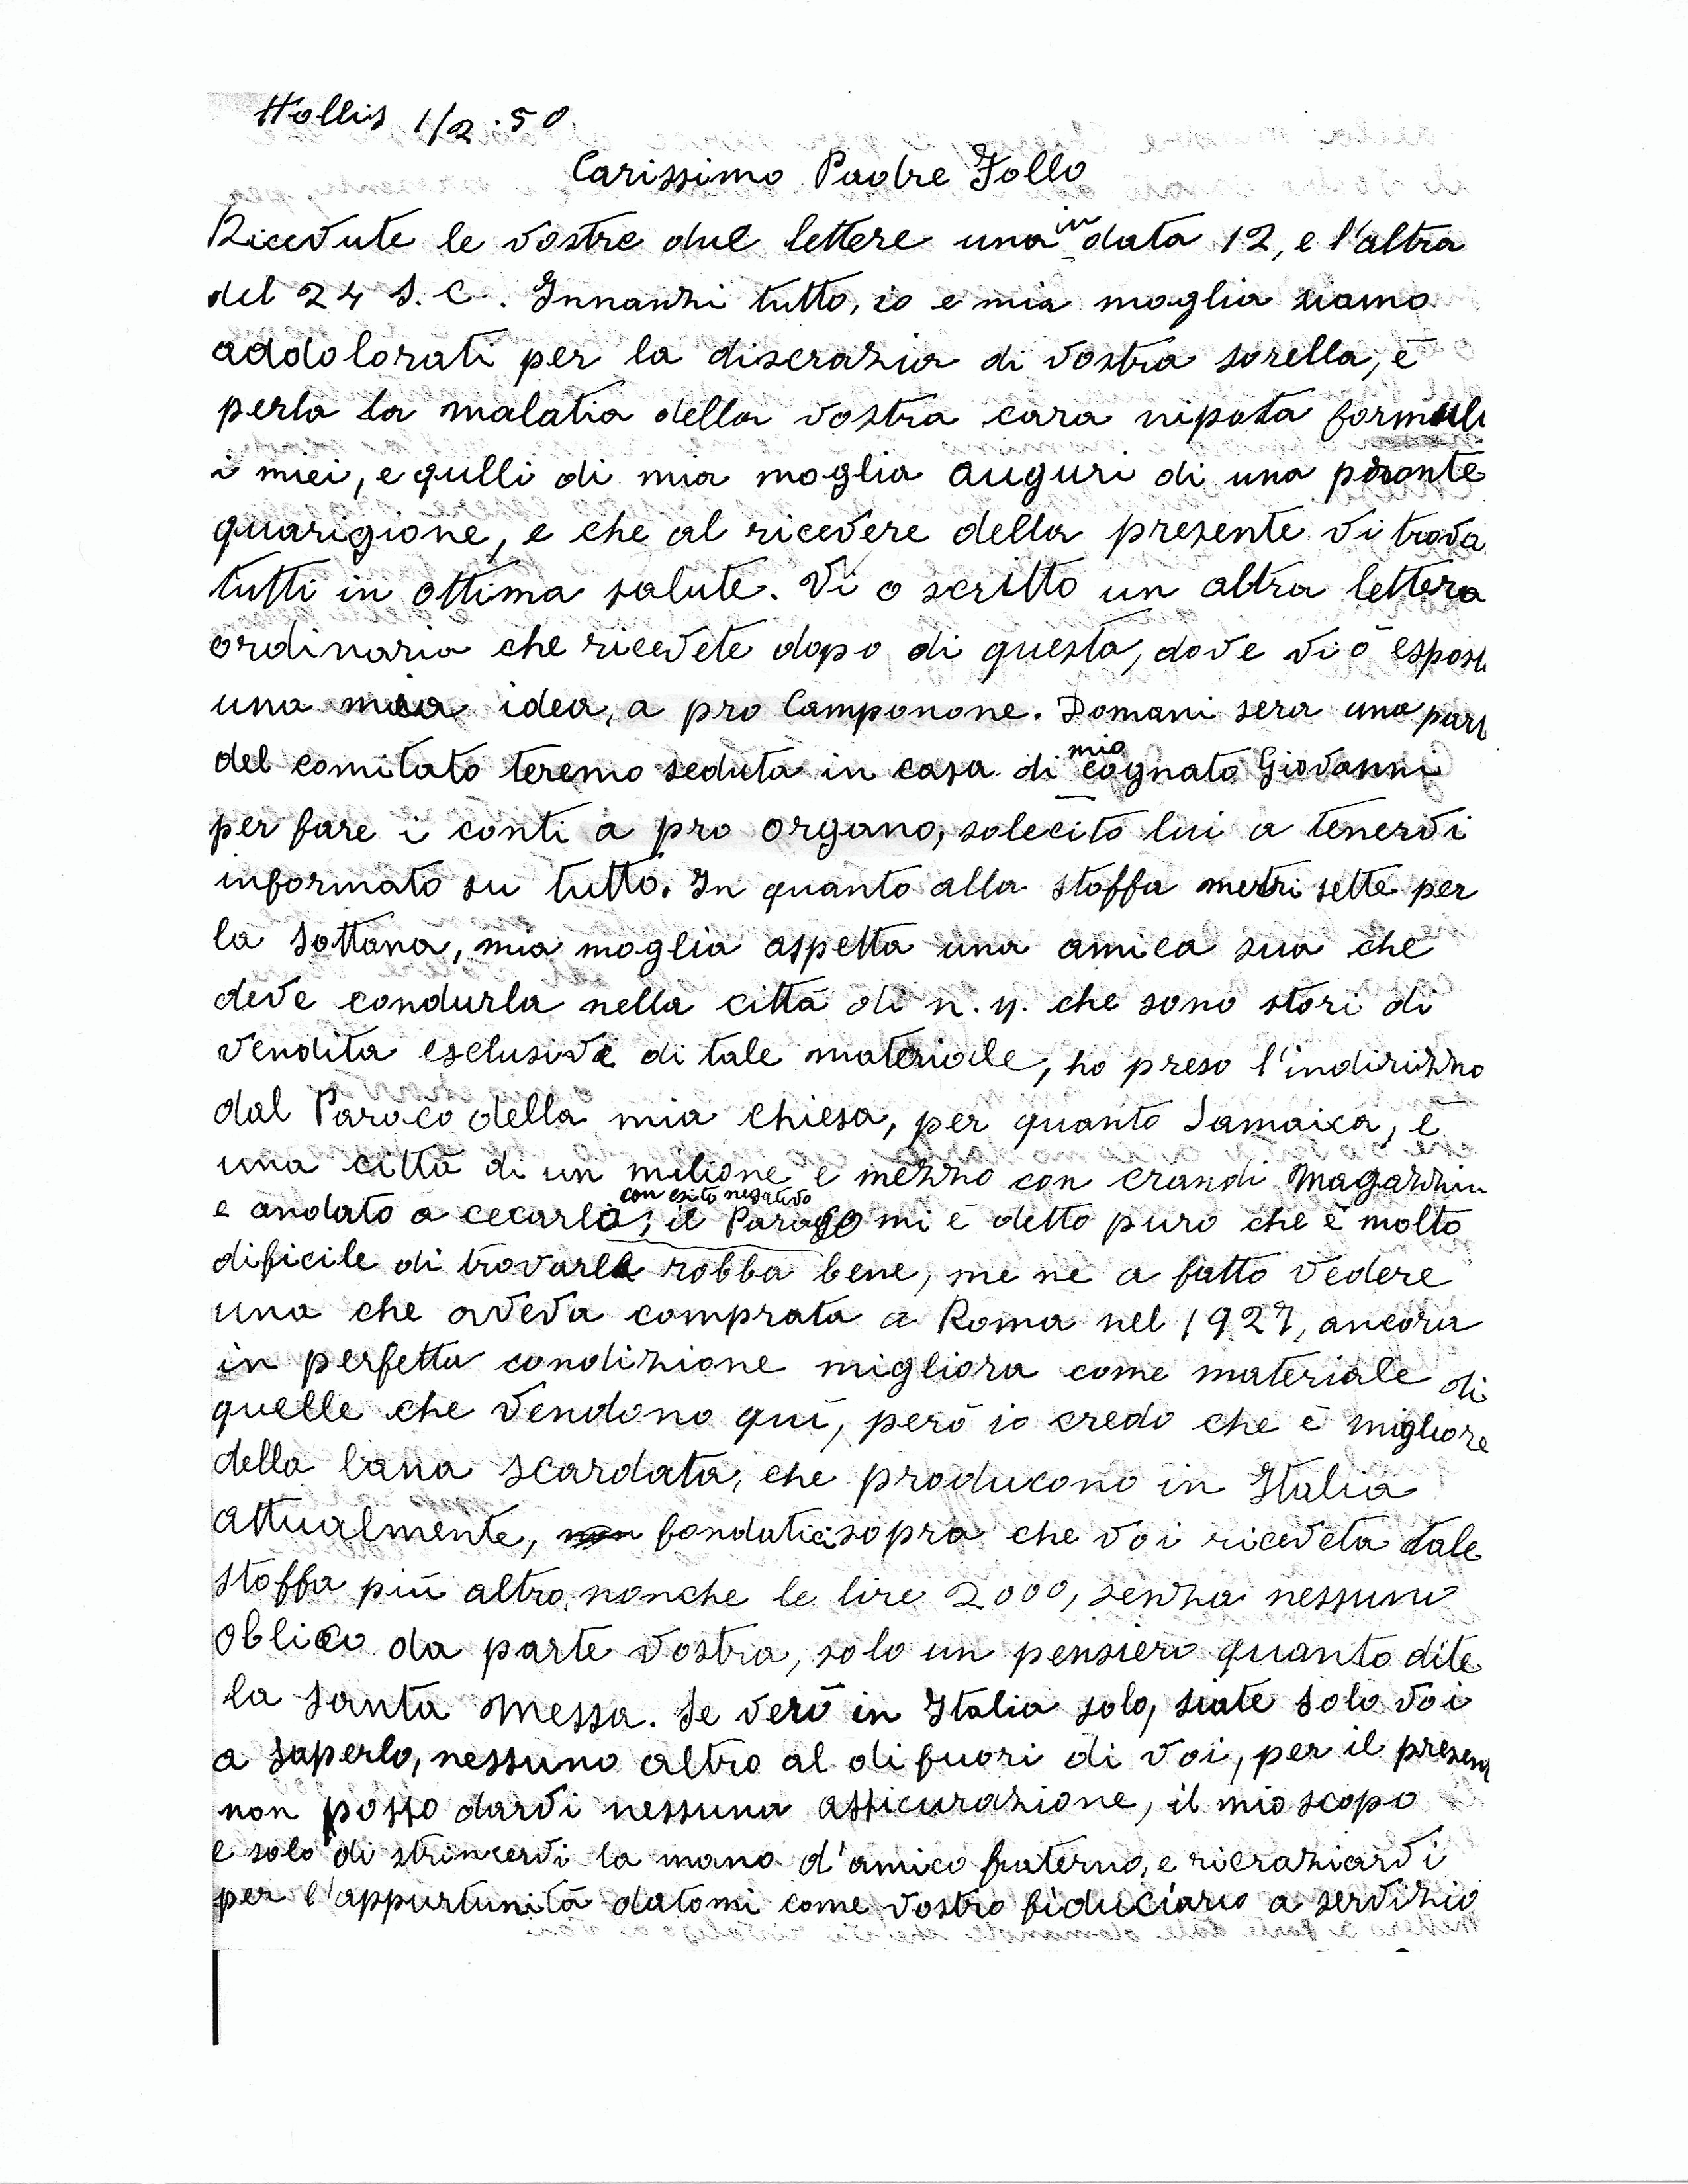 Hollis 1/2.50
Carissimo Padre Follo
Ricevute le vostre due lettere una in data 12, e l'altra
del 24 S. C. Innanzi tutto, io e mia moglia siamo
addolorati per la discrazia di vostra sorella, e
perla la malatia della vostra cara nipota formuli
i miei, e qulli di mia moglia auguri di una pronte
quarigione, e che al ricevere della presente vi trova
tutti in ottima salute. Vi o scritto un altra lettera
ordinaria che ricevete dopo di questa, dove vi ò espost
una mia idea, a pro Camponone. Domani sera una part
del comitato teremo seduta in casa di mio cognato Giovanni
per fare i conti a pro organo, solecito lui a tenervi
informato su tutto. In quanto alla stoffa metri sette per
la sottana, mia moglia aspetta una amica sua che
deve condurla nella città di n. y. che sono stori di
vendita esclusive di tale materiale, ho preso l'indirizzo
dal Paroco della mia chiesa, per quanto Jamaica, è
una città di un milione e mezzo con crandi Magazzin
e andato a cecarlo, con esito negativo il Paroco mi è detto puro che è molto
dificile di trovarla robba bene, me ne a fatto vedere
una che aveva comprata a Roma nel 1927, ancora
in perfetta condizione migliora come materiale di
quelle che vendono quì, però io credo che è migliore
della lana scardata, che producono in Italia
attualmente, fondatici sopra che voi riceveta tale
stoffa più altro, nonche le lire 2000, senza nessuno
oblico da parte vostra, solo un pensiero quanto dite
la santa Messa. Se verò in Italia solo, siate solo voi
a saperlo, nessuno altro al di fuori di voi, per il presen
non posso darvi nessuna assicurazione, il mio scopo
e solo di strincervi la mano d'amico fraterno, e ricraziarvi
per l'appurtunità datomi come vostro fiduciario a servizio